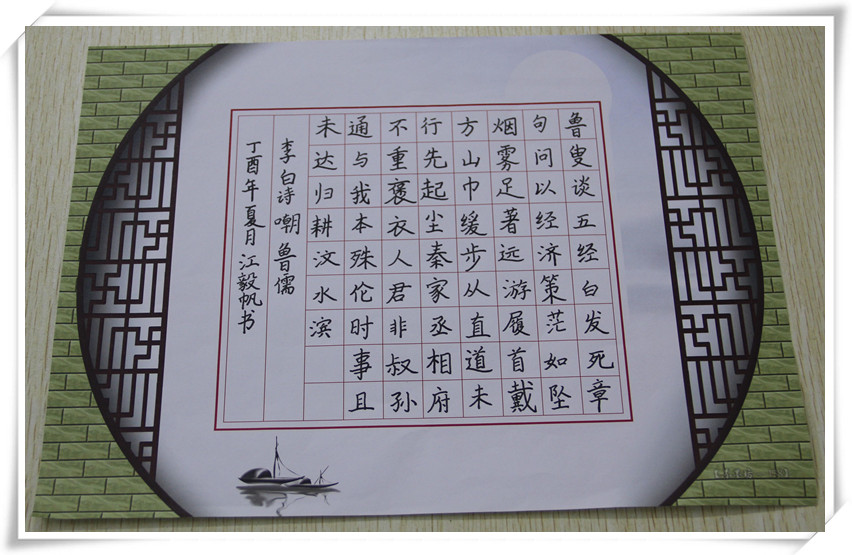 鲁叟谈五经白发死章
句问以经济策茫如坠
烟雾足著远游履首戴
方山巾缓步从直道未
行先起尘秦家丞相府
不重褒衣人君非叔孙
通与我本殊伦时事且
未达归耕汶水滨
李白诗 嘲鲁儒
丁酉年夏月江毅帆书